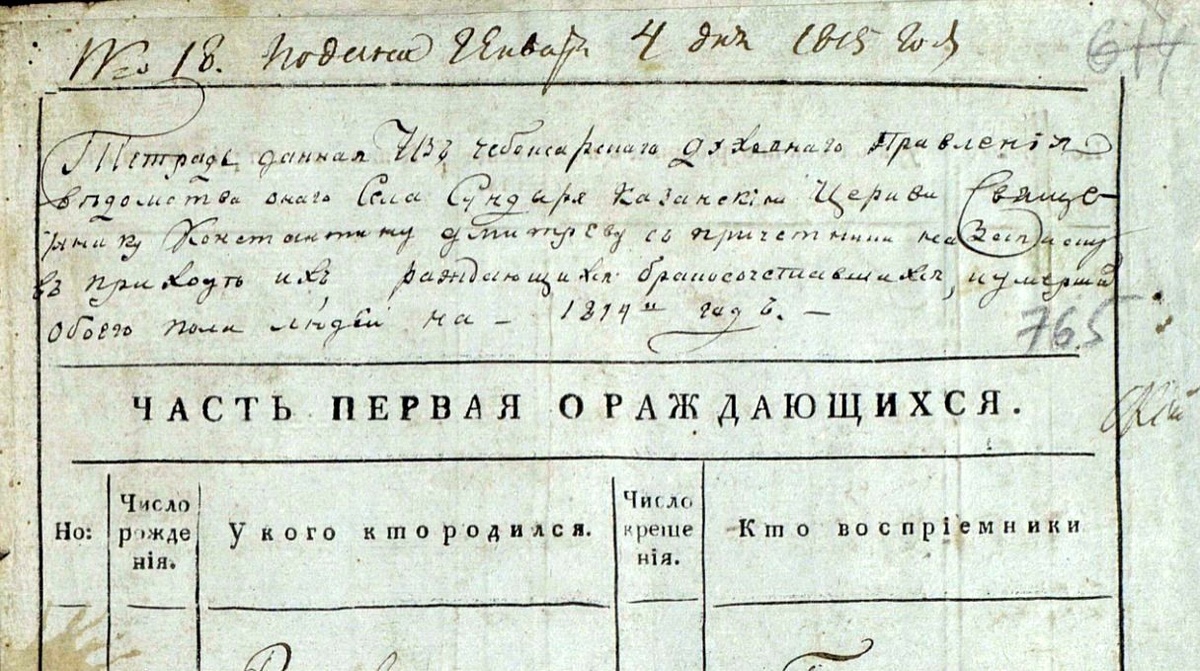 № 18. Подана Генваря 4 дня 1815 года
617
Тетрадь данная Изъ чебоксарскаго духовнаго Правленія
вѣдомства онаго Села Сундыря Казанскія Церкви Свяще-
ннику Константину дмитреву съ причетники на Записку
въ приходѣ ихъ раждающихся бракосочетавшихся, и умершихъ
обоего пола людей на - 1814й годъ. -
765
ЧАСТЬ ПЕРВАЯ О РАЖДАЮЩИХСЯ.
Но:
Число
рожде
нія.
У кого кто родился.
Число
креще
нія.
Кто воспріемники